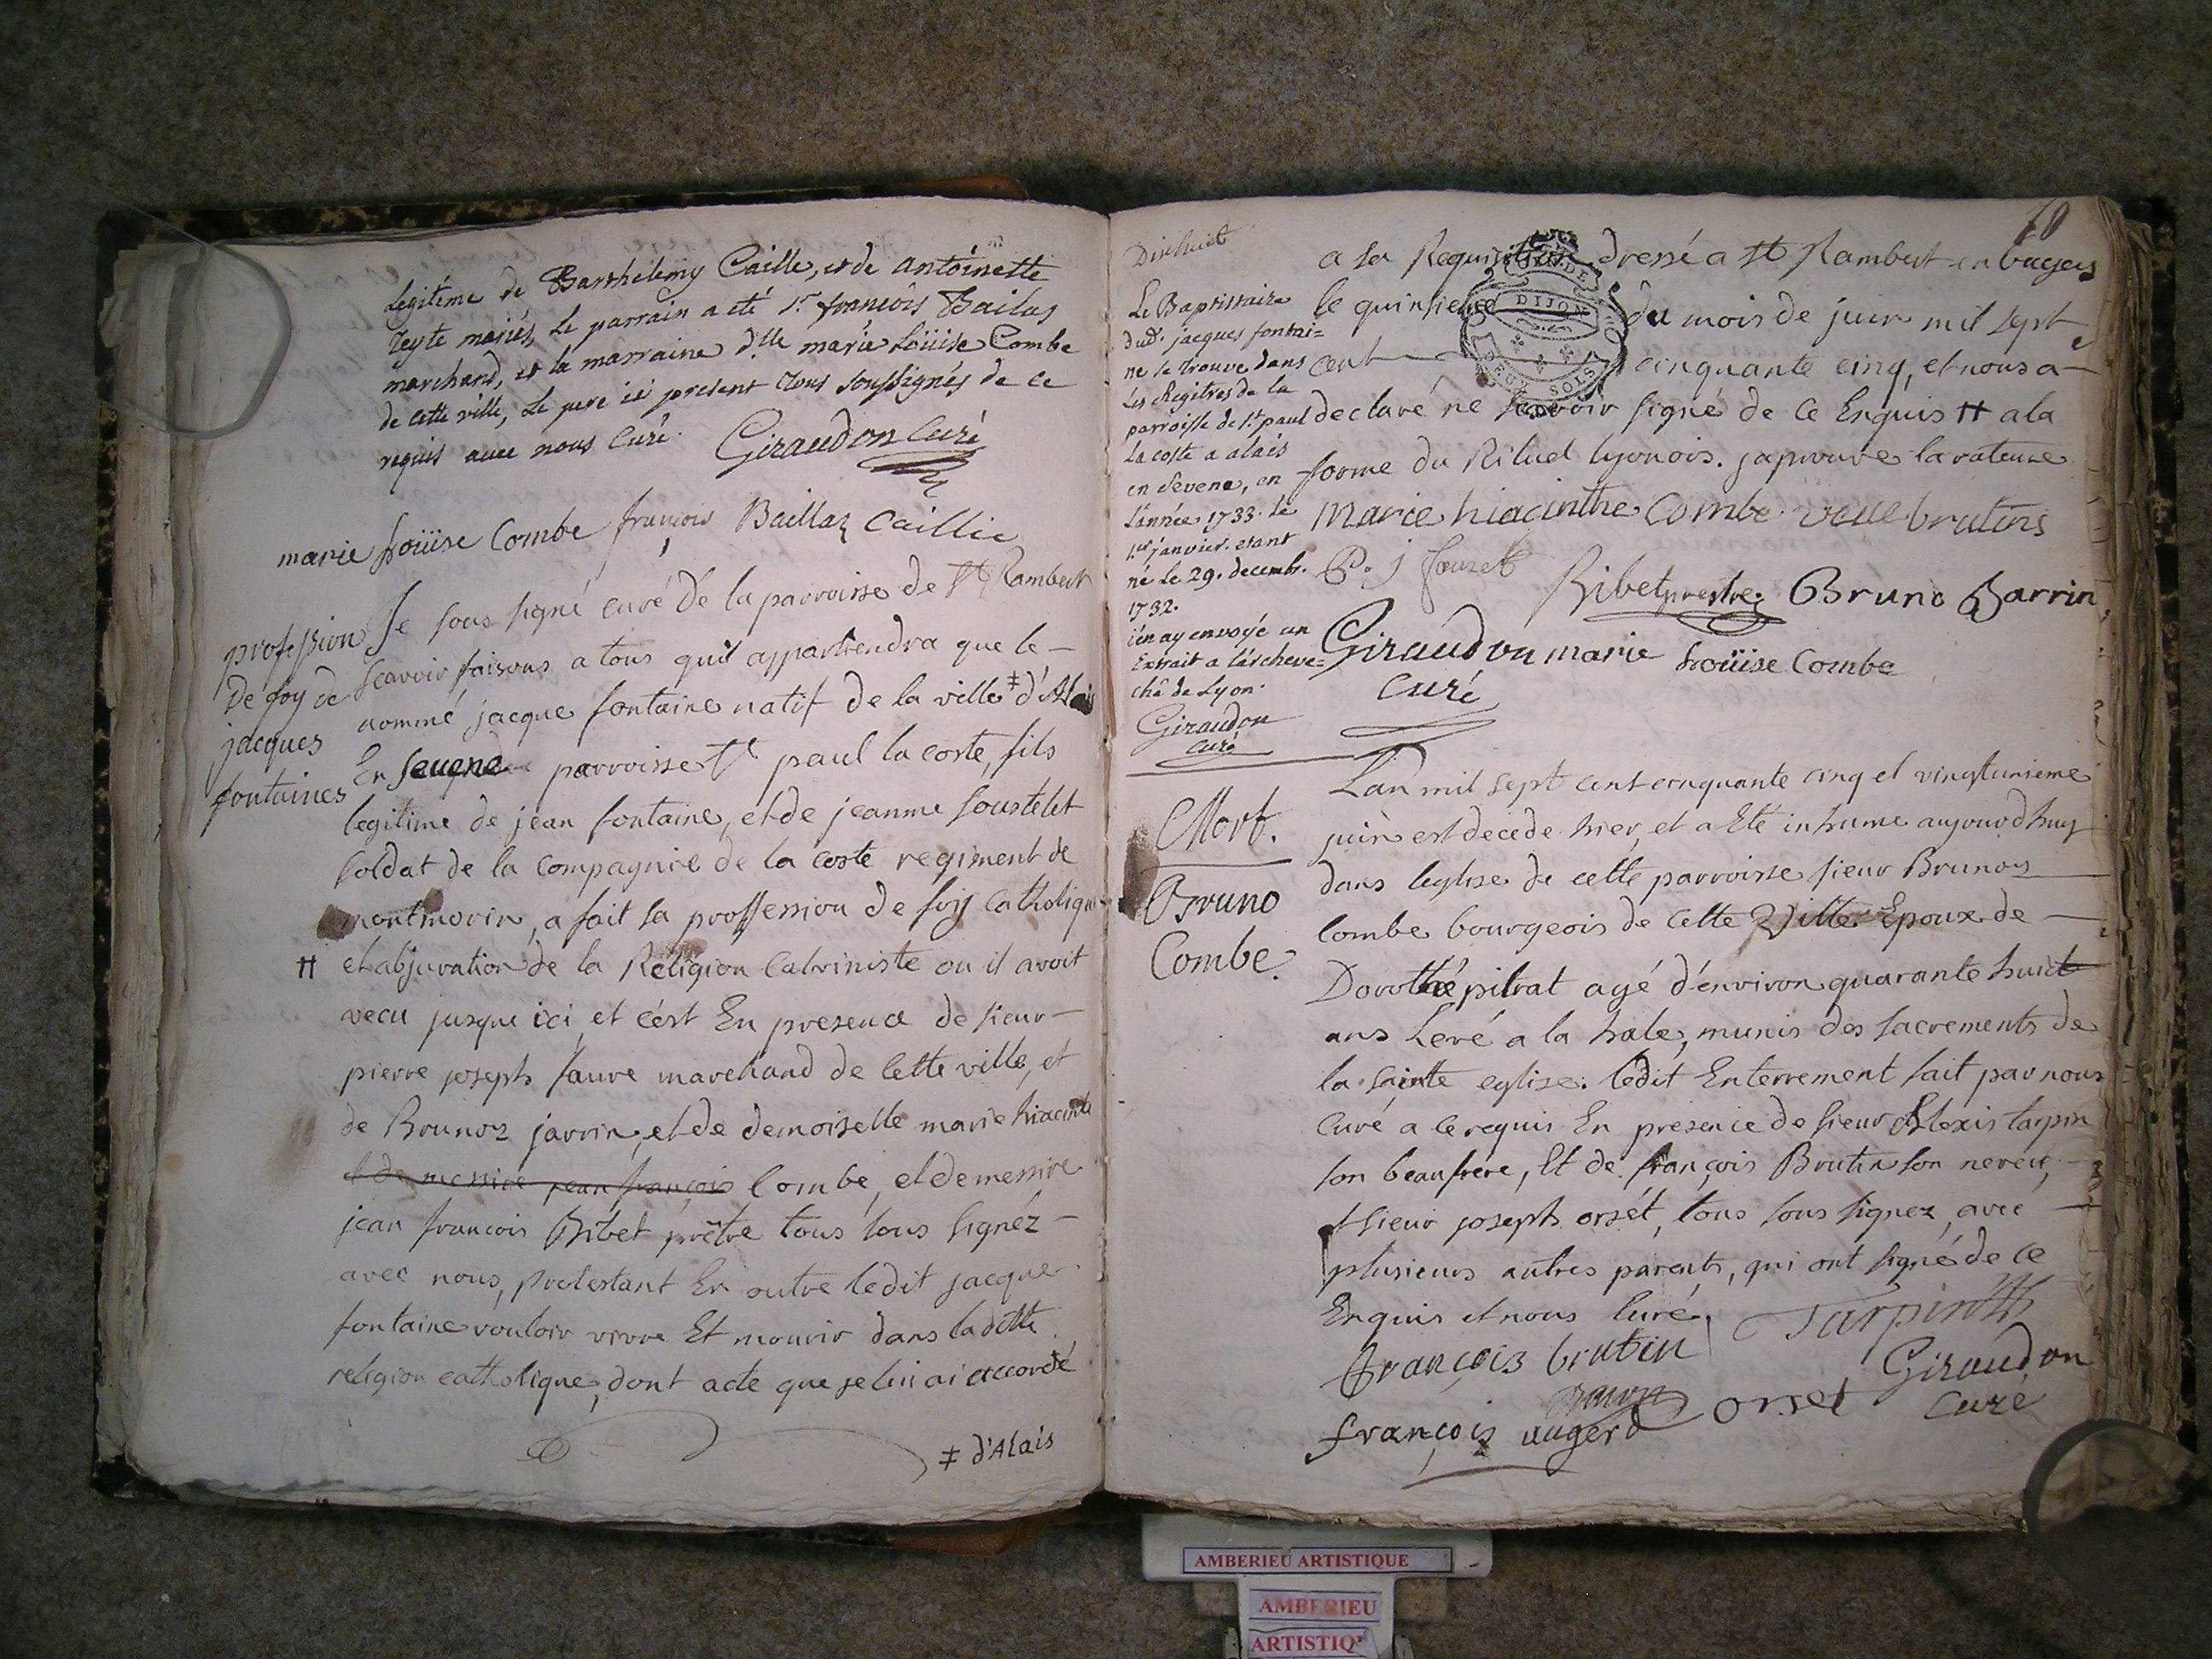 Legitime de Barthelemy Caille, et de antoinette
Teyte mariés, Le parrain a eté Sr. françois Bailas
marchand, et la marraine dlle marie Loüise Combe
de cette ville, Le pere ici present tous soussignés de ce
requis avec nous Curé. Giraudon Curé
marie Loüise Combe françois Baillaz Caillie
profession
De foy de
jacques
fontaines
Je sous signé curé De la parroisse de St Rambert
scavoir faisons a tous quil appartiendra que le —
nommé jacque fontaine natif de la ville ‡ d'Alais
En sevene parroisse St paul la coste, fils
legitime de jean fontaine, et de jeanne soustelet
soldat de la compagnie de la coste regiment de
montmorin, a fait sa proffession de foy catholique
# et abjuration de la Religion Calviniste ou il avoit
vecu jusque ici et cést En presence de sieur —
pierre joseph faure marchand de Cette ville, et
de Brunoz jarrin, et de demoiselle marie hiacinte
et de messire jean françois Combe, et de messire
jean francois Ribet prêtre tous sous signéz —
avec nous, protestant En outre ledit jacque
fontaine vouloir vivre Et mourir dans la ditte
religion catholique, dont acte que je lui ai accordé
‡ d'Alais
Dixhuit
Le Baptistaire
dud. jacques fontai=
ne se trouve dans
Les Regitres de la
parroisse de St. paul
la coste a alais
en sévene, en
l'année 1733. le
1er janvier. etant
né le 29. decembr.
1732.
j'en ay envoyé un
Extrait a l'árcheve=
ché de Lyon.
Giraudon
curé
10
a sa Requisition dressé a St Rambert en bugey
le quinsieme du mois de juin mil sept
cent cinquante cinq, et nous a —
declaré ne scavoir signé de Ce Enquis # a la
forme du Rituel lyonois. japrouve la rature
Marie hiacinthe Combe veue brutins
P. j fauret
Ribet prestre Bruno Jarrin
Giraudon marie Loüise Combe
curé
GEN DE
DIJON
DEUX SOLS
Mort.
Bruno
Combe.
Lan mil sept cent cinquante cinq et vingtunieme
juin est decede hier, et a Eté inhumé aujourdhuy
dans leglise de cette parroisse sieur Brunoz
Combe bourgeois de Cette Ville Epoux de —
Dorothé pilrat agé d'énviron quarante huict
ans Levé a la hale, munis des sacrements de
la sainte eglise. Ledit Enterrement fait par nous
Curé a ce requis En presence de sieur Alexis tarpin
son beaufrere, Et de françois Brutin son neveu,
et sieur joseph orsét, tous sous signez avec
plusieurs autres parents, qui ont signé de ce
Enquis et nous Curé. Tarpin
françois brutin Giraudon
orset curé
françois augerd
AMBERIEU ARTISTIQUE
AMBERIEU
ARTISTIQ